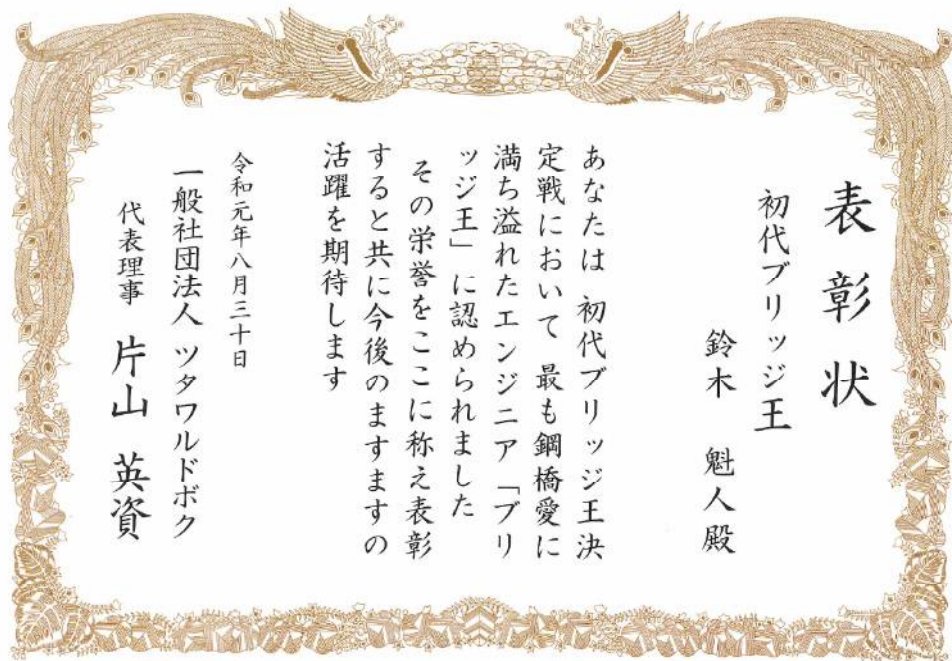 表彰状
初代ブリッジ王
鈴木 魁人殿
あなたは 初代ブリッジ王決
定戦において 最も鋼橋愛に
満ち溢れたエンジニア「ブリ
ッジ王」に認められました
その栄誉をここに称え表彰
すると共に今後のますますの
活躍を期待します
令和元年八月三十日
一般社団法人 ツタワルドボク
代表理事 片山 英資